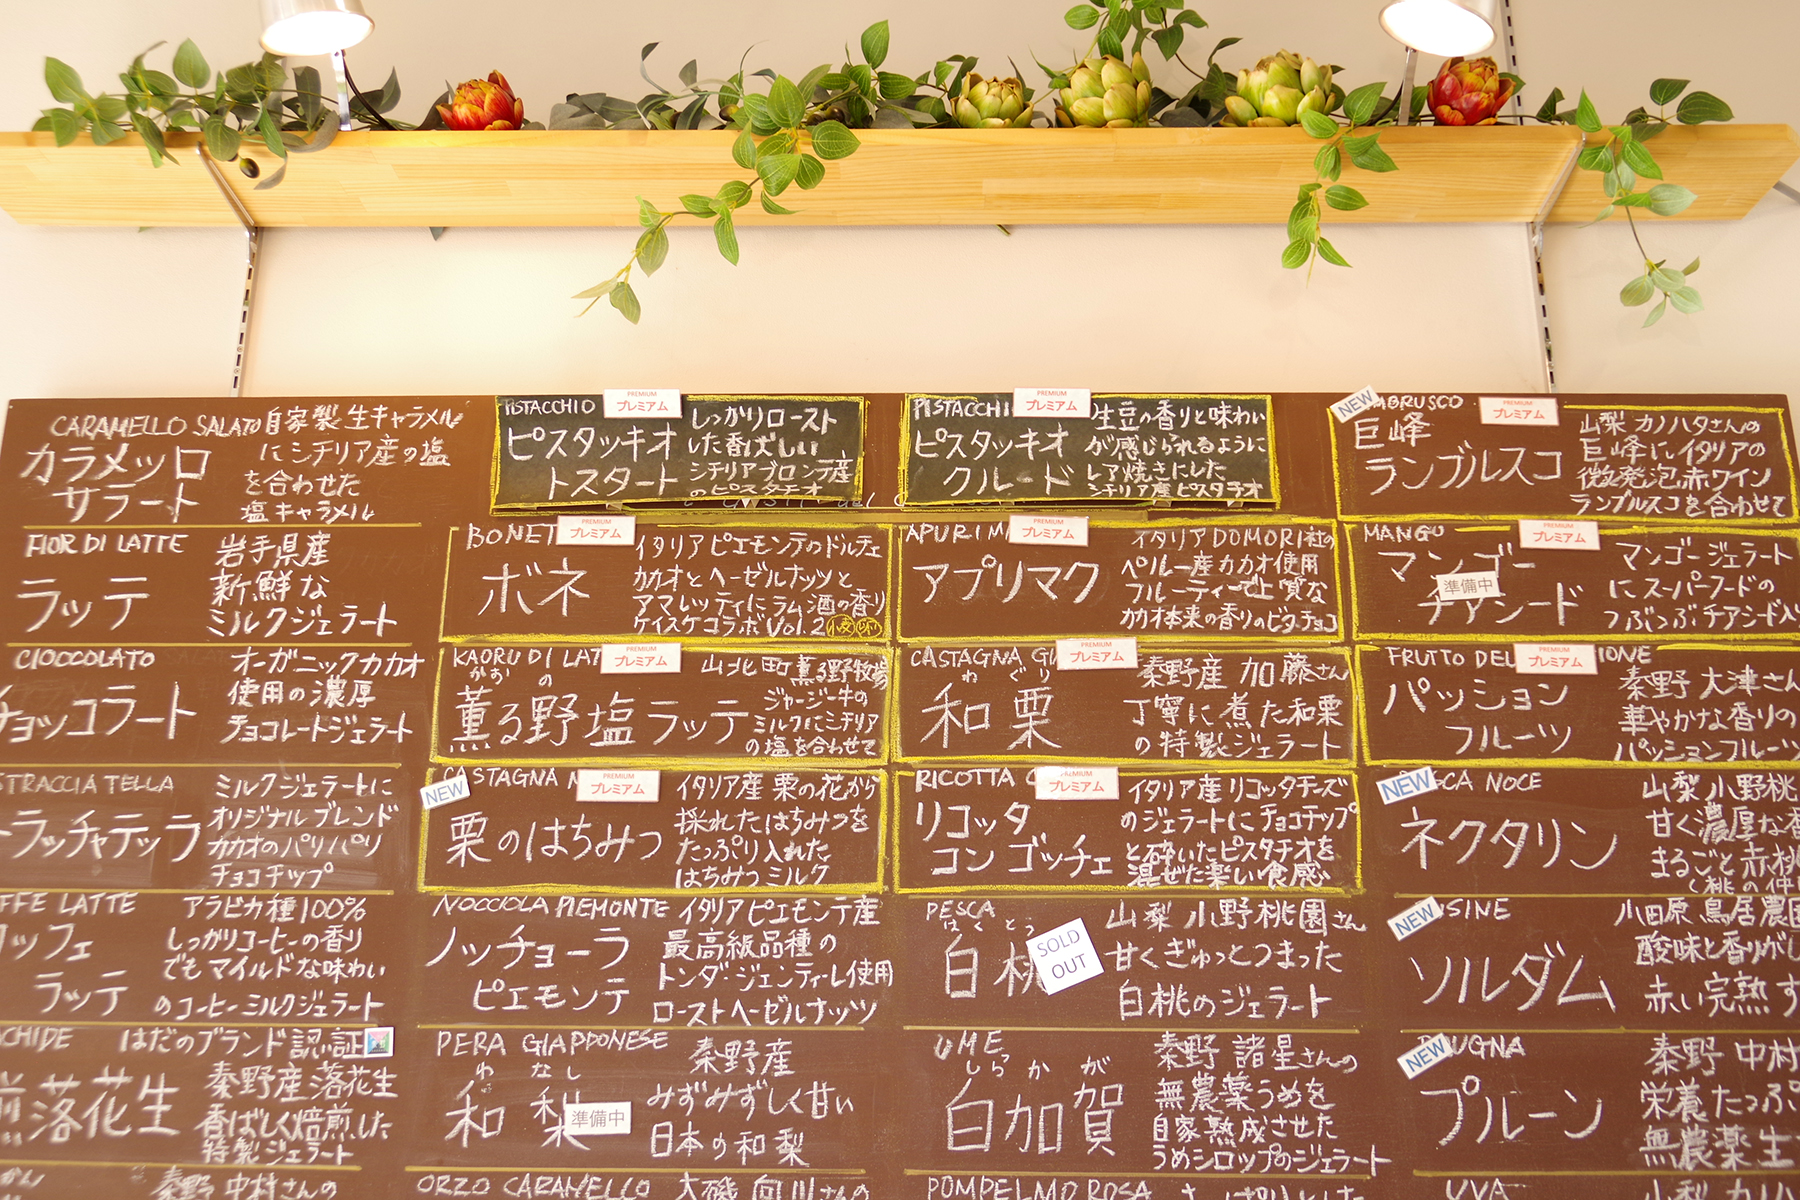 CARAMELLO SALATO
カラメッロ
サラート
自家製生キャラメル
にシチリア産の塩
を合わせた
塩キャラメル
PISTACCHIO
PREMIUM
プレミアム
ピスタッキオ
トスタート
しっかりロースト
した香ばしい
シチリアブロンテ産
のピスタチオ
PISTACCHI
PREMIUM
プレミアム
ピスタッキオ
クルード
生豆の香りと味わい
が感じられるように
レア焼きにした
シチリア産ピスタチオ
NEW
MBRUSCO
PREMIUM
プレミアム
巨峰
ランブルスコ
山梨カノハタさんの
巨峰にイタリアの
微発泡赤ワイン
ランブルスコを合わせて
FIOR DI LATTE
ラッテ
岩手県産
新鮮な
ミルクジェラート
BONET
PREMIUM
プレミアム
ボネ
イタリアピエモンテのドルチェ
カカオとヘーゼルナッツと
アマレッティにラム酒の香り
ケイスケコラボVol.2
APURIMA
PREMIUM
プレミアム
アプリマク
イタリアDOMORI社の
ペルー産カカオ使用
フルーティーで上質な
カカオ本来の香りのビターチョコ
MANGO
PREMIUM
プレミアム
マンゴー
準備中
チアシード
マンゴージェラート
にスーパーフードの
つぶつぶチアシード入り
CIOCCOLATO
チョッコラート
オーガニックカカオ
使用の濃厚
チョコレートジェラート
KAORU DI LAT
PREMIUM
プレミアム
かお の
薫る野塩ラッテ
山北町薫る野牧場
ジャージー牛の
ミルクにシチリア
の塩を合わせて
CASTAGNA GI
PREMIUM
プレミアム
わぐり
和栗
秦野産加藤さん
丁寧に煮た和栗
の特製ジェラート
FRUTTO DEL
IONE
PREMIUM
プレミアム
パッション
フルーツ
秦野大津さん
華やかな香りの
パッションフルーツ
STRACCIATELLA
トラッチャテッラ
ミルクジェラートに
オリジナルブレンド
カカオのパリパリ
チョコチップ
NEW
CASTAGNA M
PREMIUM
プレミアム
栗のはちみつ
イタリア産栗の花から
採れたはちみつを
たっぷり入れた
はちみつミルク
RICOTTA C
PREMIUM
プレミアム
リコッタ
コンゴッチェ
イタリア産リコッタチーズ
のジェラートにチョコチップ
と砕いたピスタチオを
混ぜた楽しい食感
NEW
CA NOCE
ネクタリン
山梨小野桃
甘く濃厚な香
まるごと赤桃
(桃の仲間
FFE LATTE
ッフェ
ラッテ
アラビカ種100%
しっかりコーヒーの香り
でもマイルドな味わい
のコーヒーミルクジェラート
NOCCIOLA PIEMONTE
ノッチョーラ
ピエモンテ
イタリアピエモンテ産
最高級品種の
トンダ・ジェンティーレ使用
ローストヘーゼルナッツ
PESCA
はくとう
白桃
SOLD
OUT
山梨小野桃園さん
甘くぎゅっとつまった
白桃のジェラート
NEW
SINE
ソルダム
小田原鳥居農園
酸味と香りがし
赤い完熟す
CHIDE
落花生
はだのブランド認証
秦野産落花生
香ばしく焙煎した
特製ジェラート
PERA GIAPPONESE
わなし
和梨
準備中
秦野産
みずみずしく甘い
日本の和梨
UME
しらかが
白加賀
秦野諸星さんの
無農薬うめを
自家熟成させた
うめシロップのジェラート
NEW
UGNA
プルーン
秦野中村
栄養たっぷ
無農薬生
かん
秦野中村さんの
ORZO CARAMELLO
大磯向川さんの
POMPELMO ROSA
UVA